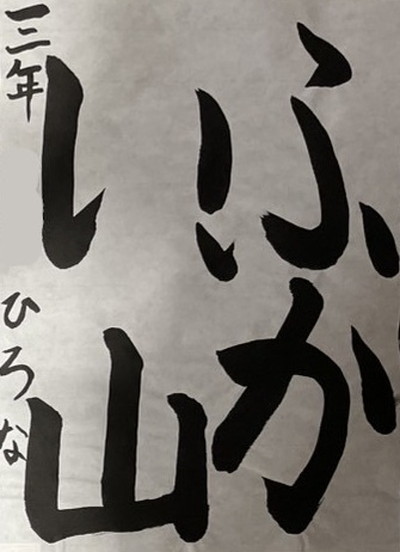 ふか
い山
三年 ひろな